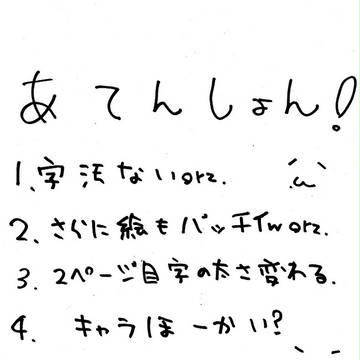 あてんしょん!
1、字汚ないorz.
2、さらに絵もバッチイw orz.
3. 2ページ目字の太さ変わる.
4. キャラほーかい?